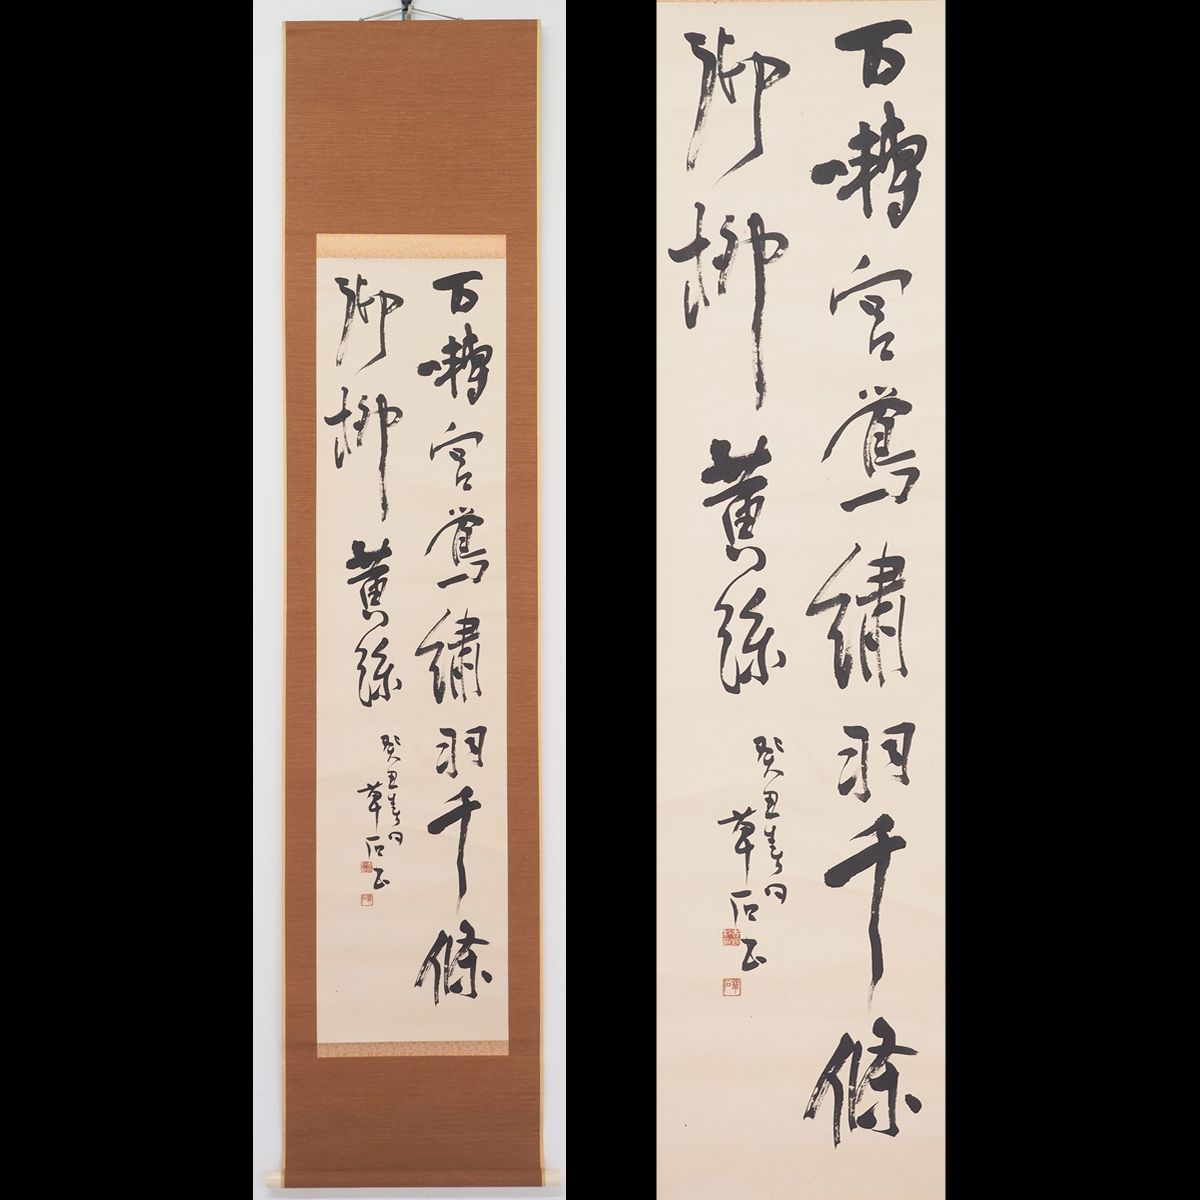 百囀宮鶯繡羽千條
御柳黄絲
癸丑春日
草石